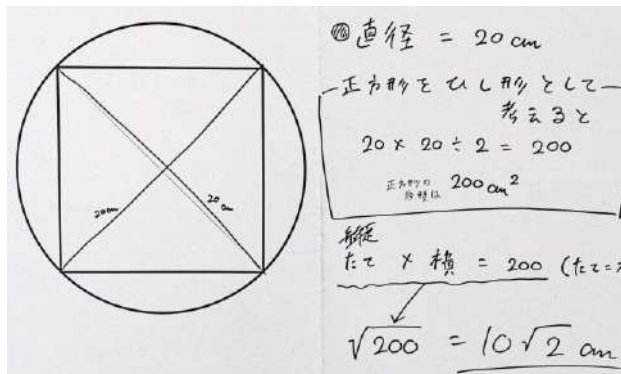 20cm
20
cm
直径 = 20cm
正方形をひし形として
考えると
20 × 20 ÷ 2 = 200
正方形の
面積は 200cm²
縦
たて × 横 = 200 (たて=
√200 = 10√2 cm